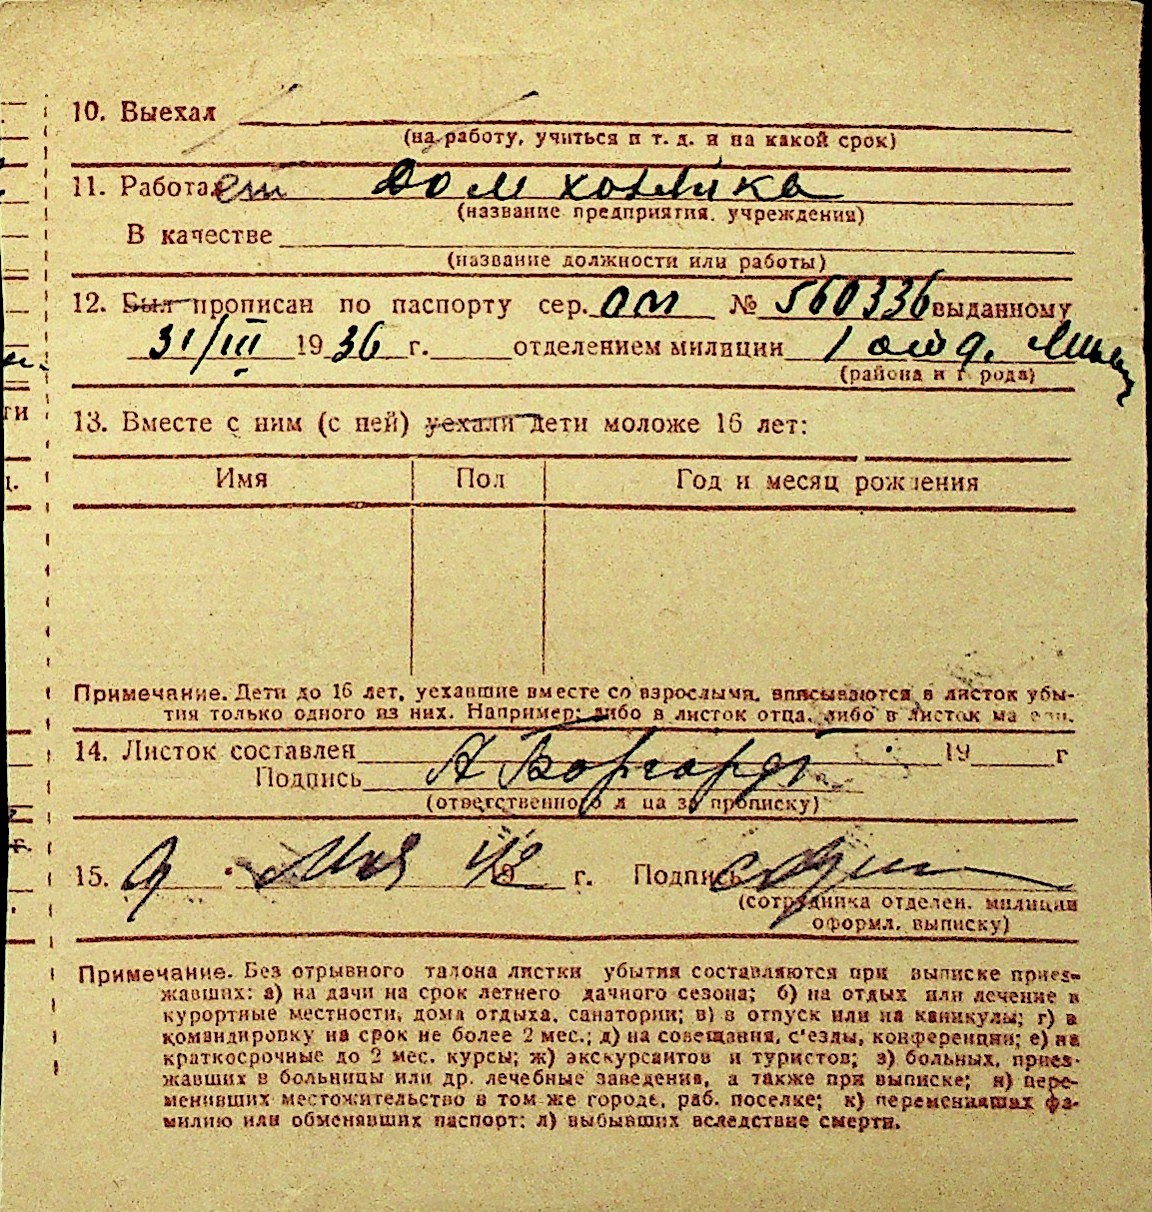 10. Выехал
(на работу, учиться и т. д. и на какой срок)
11. Работает дом хозяйка
(название предприятия, учреждения)
В качестве
(название должности или работы)
12. Был прописан по паспорту сер. ОМ № 560336 выданному
31/III 1936 г. отделением милиции 1 отд.
(района и города)
13. Вместе с ним (с ней) уехали дети моложе 16 лет:
Имя Пол Год и месяц рождения
Примечание. Дети до 16 лет, уехавшие вместе со взрослыми, вписываются в листок убы-
тия только одного из них. Например: либо в листок отца, либо в листок матери.
14. Листок составлен 19 г
Подпись А Боргардт
(ответственного лица за прописку)
15. 9 Мая 42 г. Подпись
(сотрудника отделен. милиции
оформл. выписку)
Примечание. Без отрывного талона листки убытия составляются при выписке приез-
жавших: а) на дачи на срок летнего дачного сезона; б) на отдых или лечение в
курортные местности, дома отдыха, санатории; в) в отпуск или на каникулы; г) в
командировку на срок не более 2 мес.; д) на совещания, с'езды, конференции; е) на
краткосрочные до 2 мес. курсы; ж) экскурсантов и туристов; з) больных, приез-
жавших в больницы или др. лечебные заведения, а также при выписке; и) пере-
менивших местожительство в том же городе, раб. поселке; к) переменивших фа-
милию или обменявших паспорт; л) выбывших вследствие смерти.